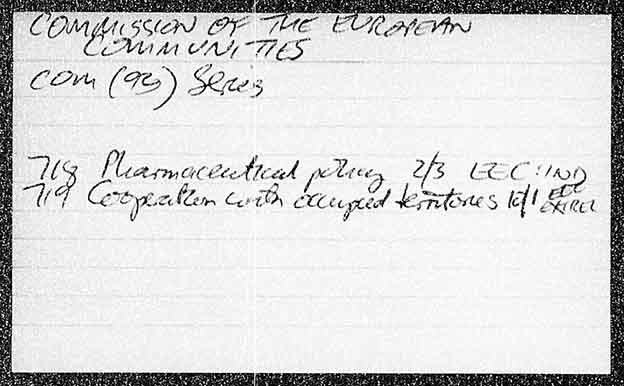 COMMISSION OF THE EUROPEAN
COMMUNITIES
COM (93) Series
718 Pharmaceutical policy 2/3 EEC:IND
719 Cooperation with occupied territories EEC
EXREL